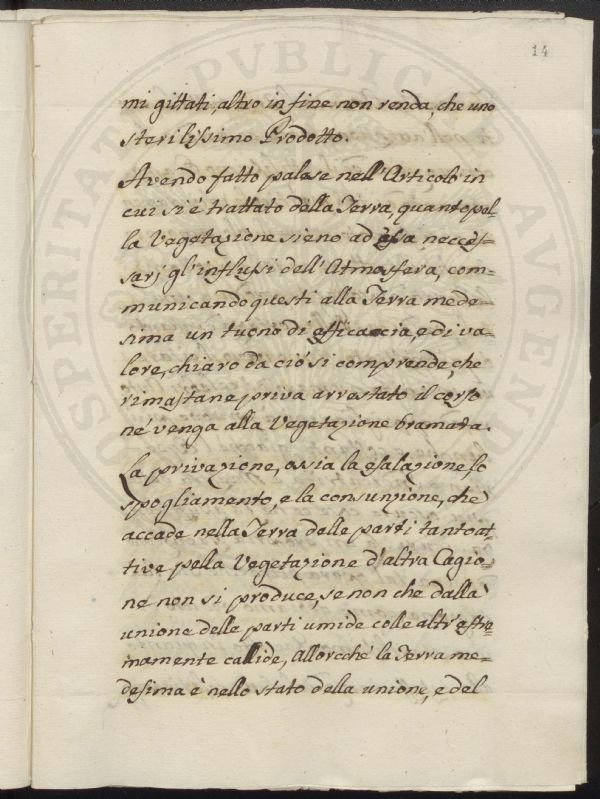 14
mi gittati, altro in fine non renda, che uno
sterilissimo Prodotto.
Avendo fatto palese nell'Articolo in
cui si è trattato della Terra, quanto pel
la Vegetazione sieno ad essa necces-
sarj gl'influssi dell'Atmosfera, com-
municando questi alla Terra mede-
sima un tuono di efficaccia, e di va-
lore, chiaro da ciò si comprende, che
rimastane priva arrestato il corso
né venga alla Vegetazione bramata.
La privazione, ossia la esalazione, lo
spogliamento, e la consunzione, che
accade nella Terra delle parti tanto at-
tive pella Vegetazione d'altra Cagio-
ne non si produce, se non che dalla
unione delle parti umide colle altr'estre-
mamente callide, allorché la Terra me-
desima è nello stato della unione, e del
PROSPERITATI PVBLICAE AVGENDAE